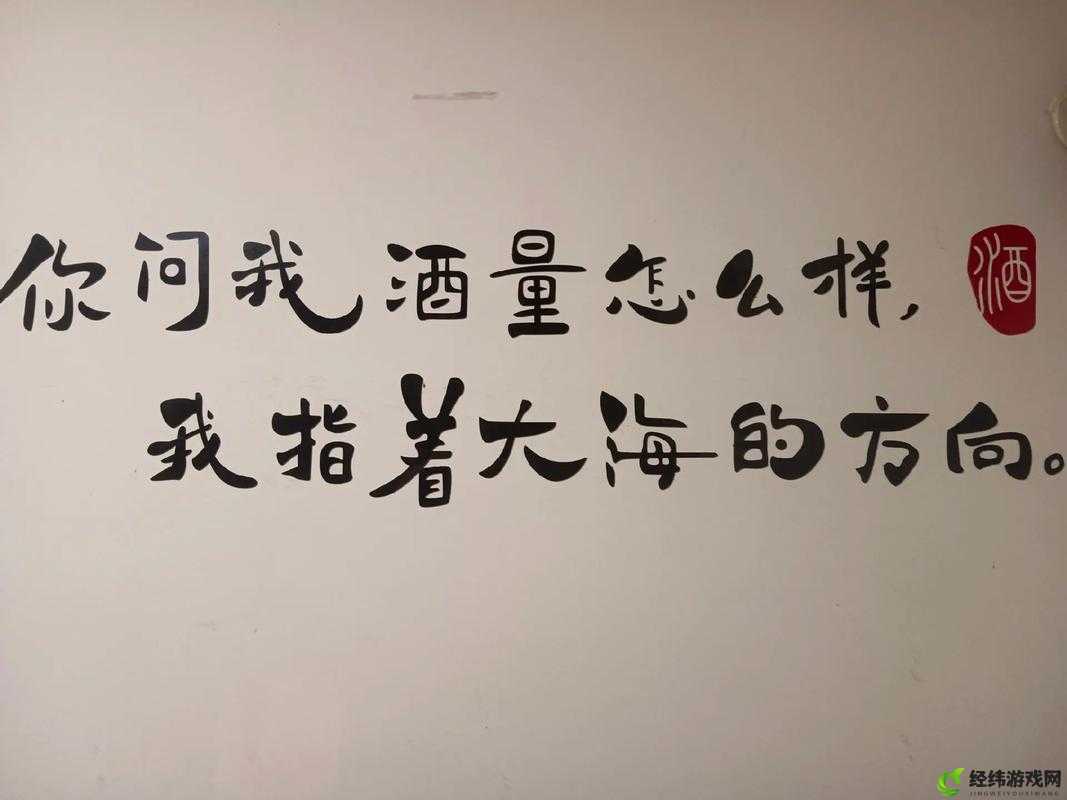 你问我酒量怎么样，
酒
我指着大海的方向。
经纬游戏网
JINGWEIYOUXIWANG